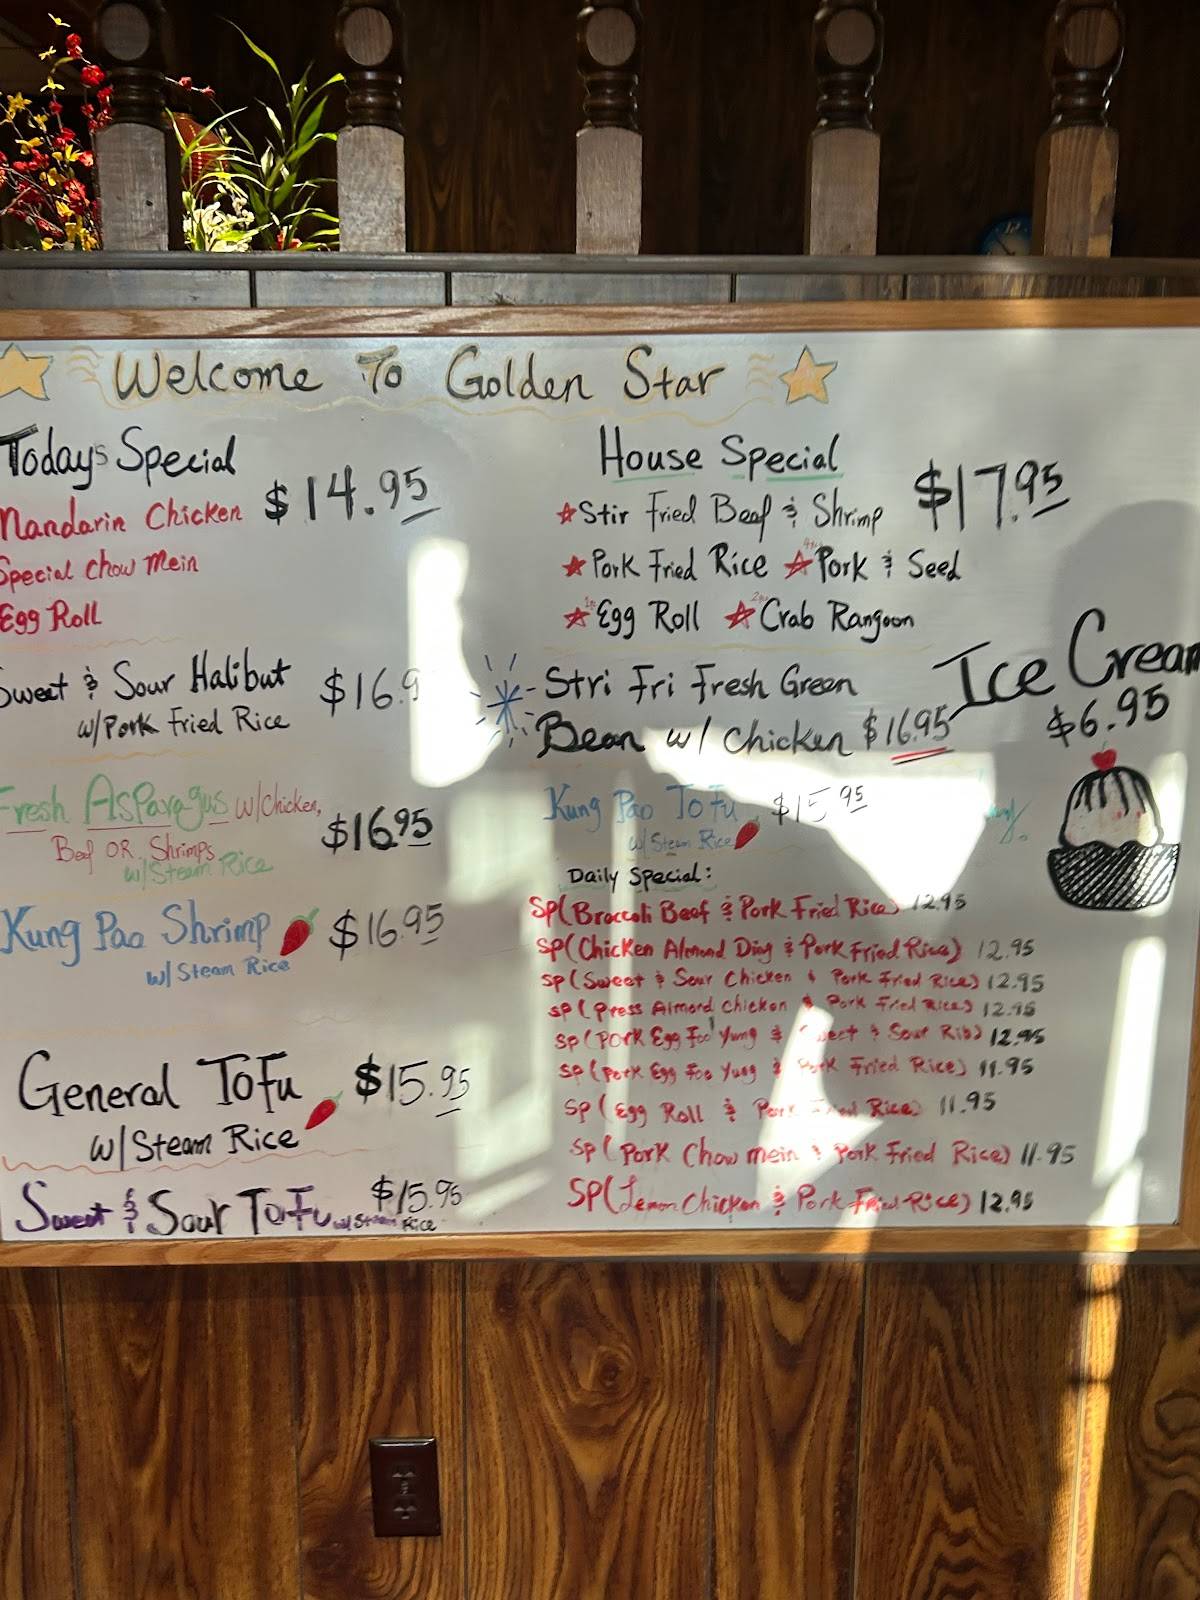 Welcome To Golden Star
Todays Special
$14.95
Mandarin Chicken
Special Chow Mein
Egg Roll
Sweet & Sour Halibut
$16.9
w/Pork Fried Rice
Fresh Asparagus w/Chicken,
$16.95
Beef OR Shrimps
w/Steam Rice
Kung Pao Shrimp $16.95
w/Steam Rice
General ToFu $15.95
w/Steam Rice
Sweet & Sour ToFu w/Steam Rice
$15.95
House Special
$17.95
Stir Fried Beef & Shrimp
Pork Fried Rice Pork & Seed
Egg Roll Crab Rangoon
Stri Fri Fresh Green
Bean w/ Chicken $16.95
Kung Pao ToFu $15.95
w/Steam Rice
Daily Special:
SP(Broccoli Beef & Pork Fried Rice) 12.95
SP(Chicken Almond Ding & Pork Fried Rice) 12.95
SP(Sweet & Sour Chicken & Pork Fried Rice) 12.95
SP(Press Almond Chicken & Pork Fried Rice) 12.95
SP(Pork Egg Foo Yung & Sweet & Sour Rib) 12.95
SP(Pork Egg Foo Yung & Pork Fried Rice) 11.95
SP(Egg Roll & Pork Fried Rice) 11.95
SP(Pork Chow mein & Pork Fried Rice) 11.95
SP(Lemon Chicken & Pork Fried Rice) 12.95
Ice Cream
$6.95